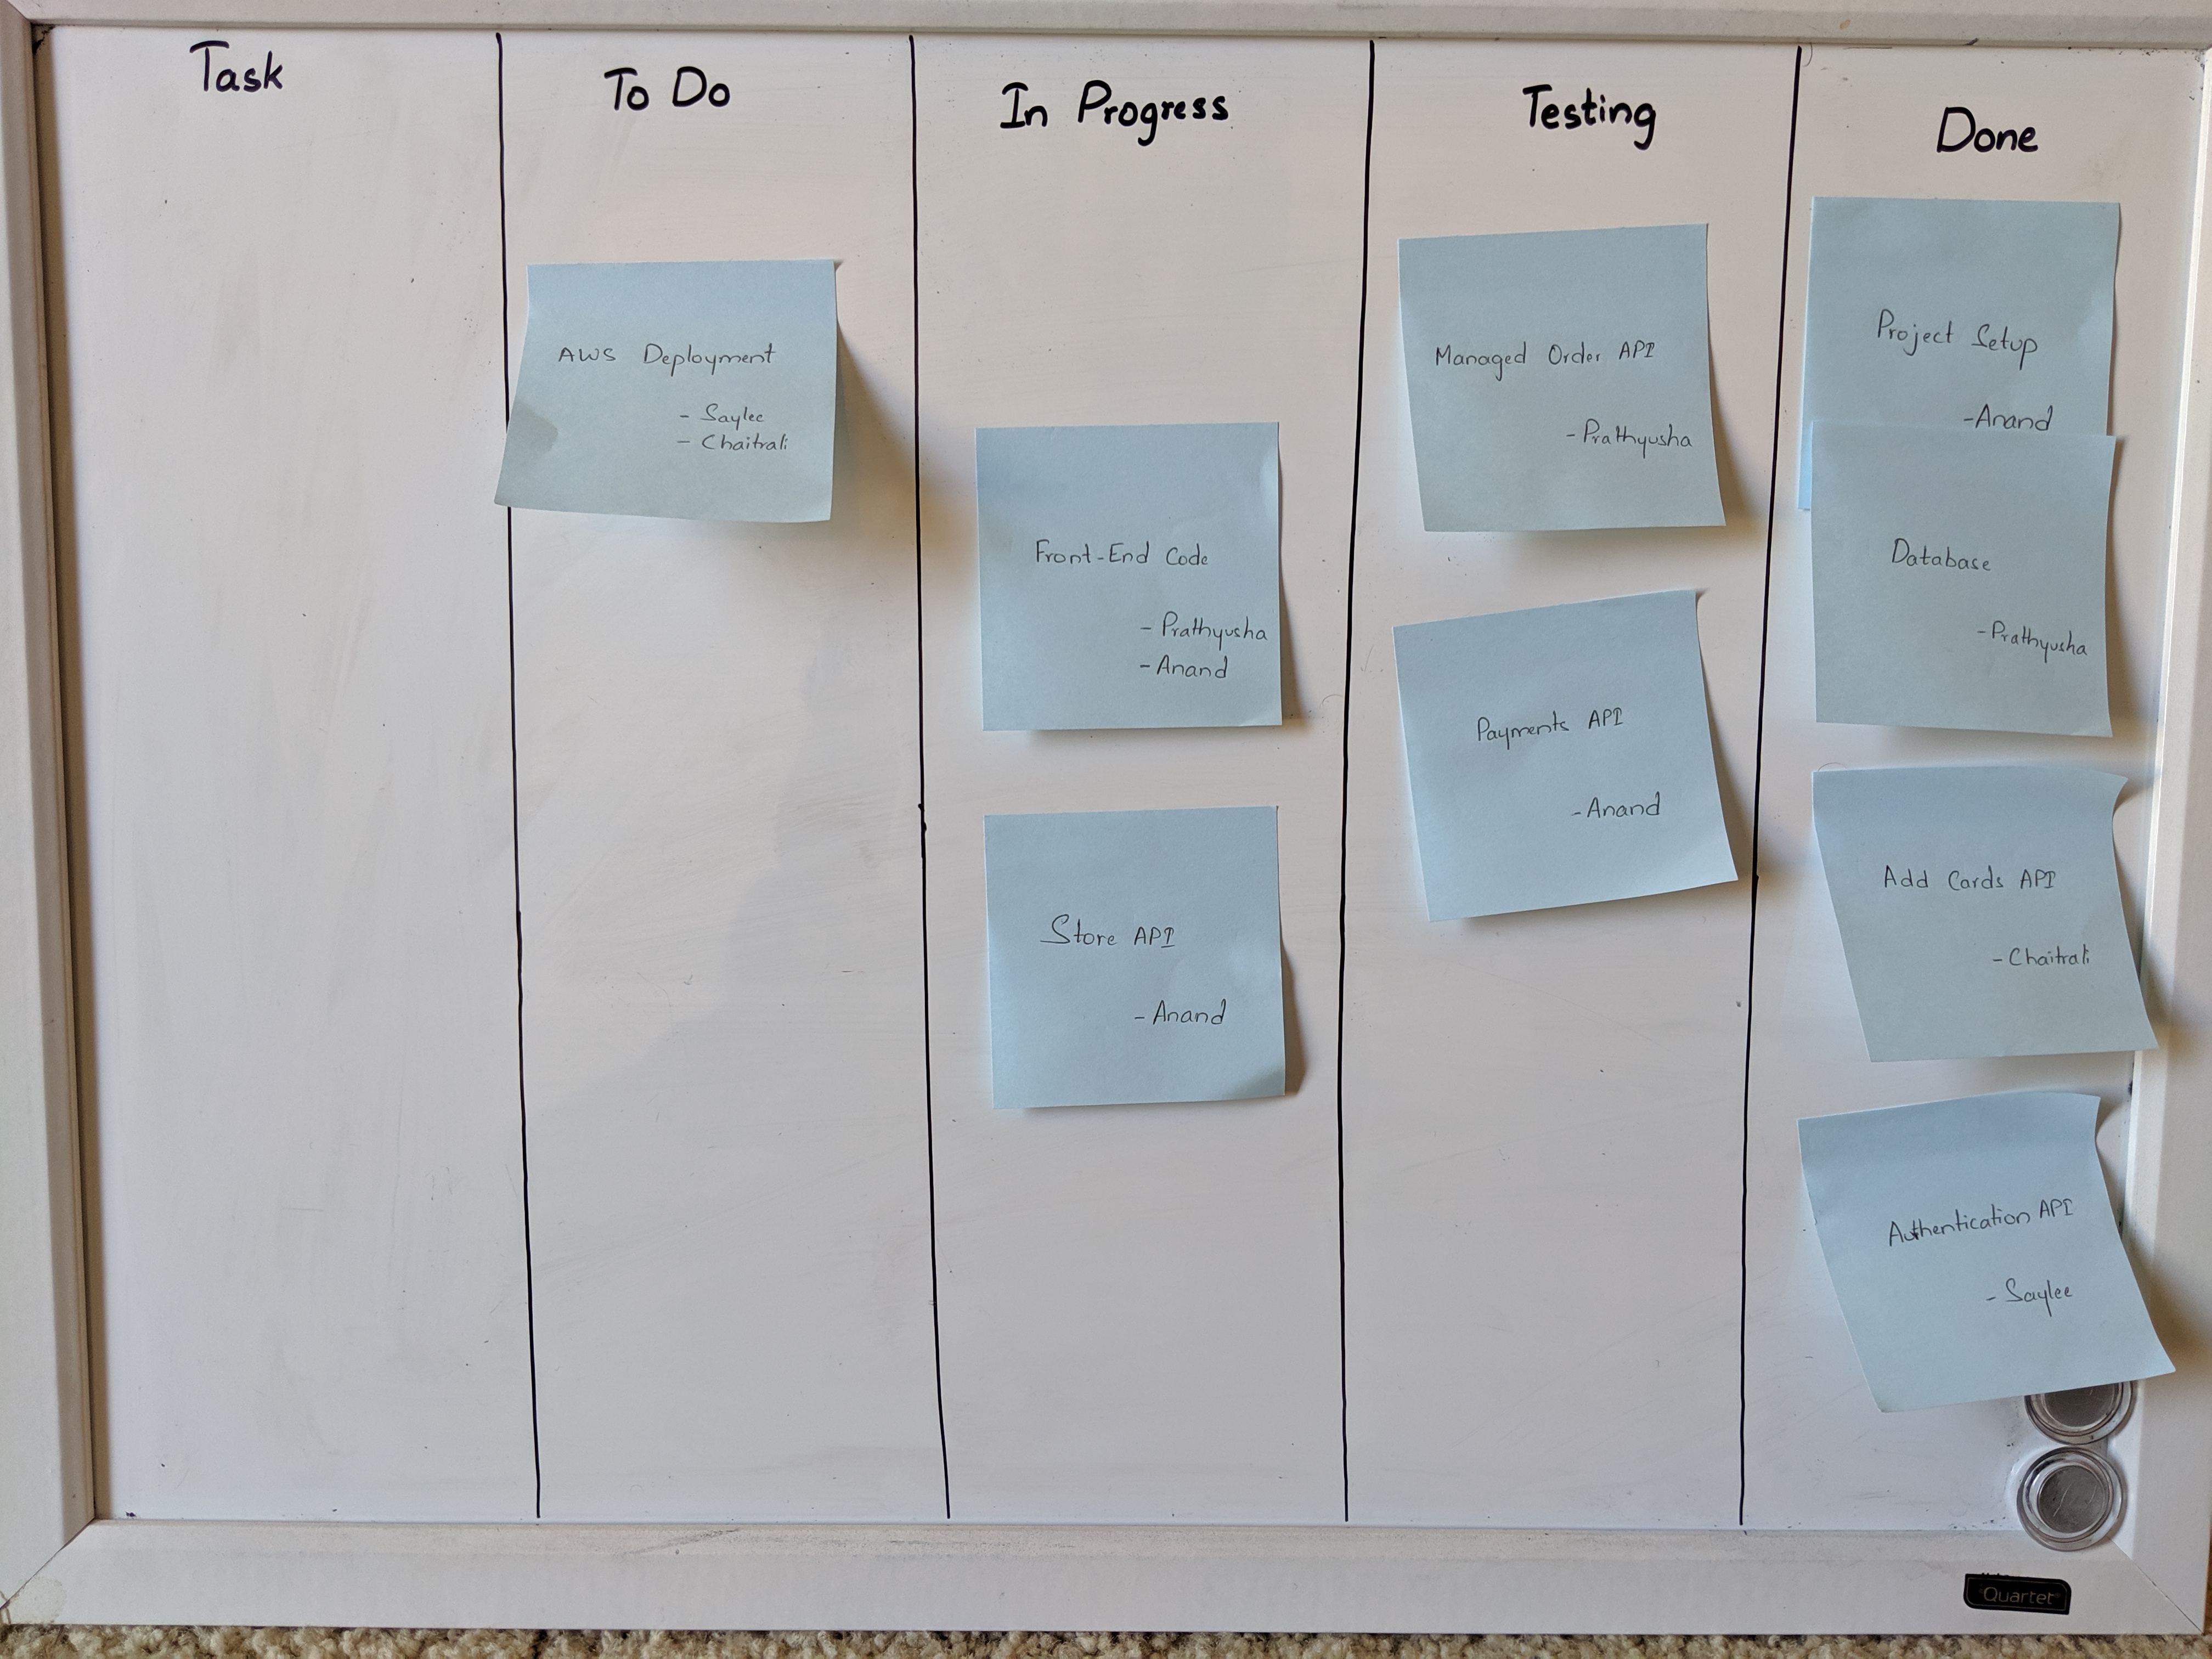 Task
To Do
In Progress
Testing
Done
AWS Deployment
- Saylee
- Chaitrali
Front-End Code
- Prathyusha
- Anand
Store API
- Anand
Managed Order API
- Prathyusha
Payments API
- Anand
Project Setup
- Anand
Database
- Prathyusha
Add Cards API
- Chaitrali
Authentication API
- Saylee
Quartet